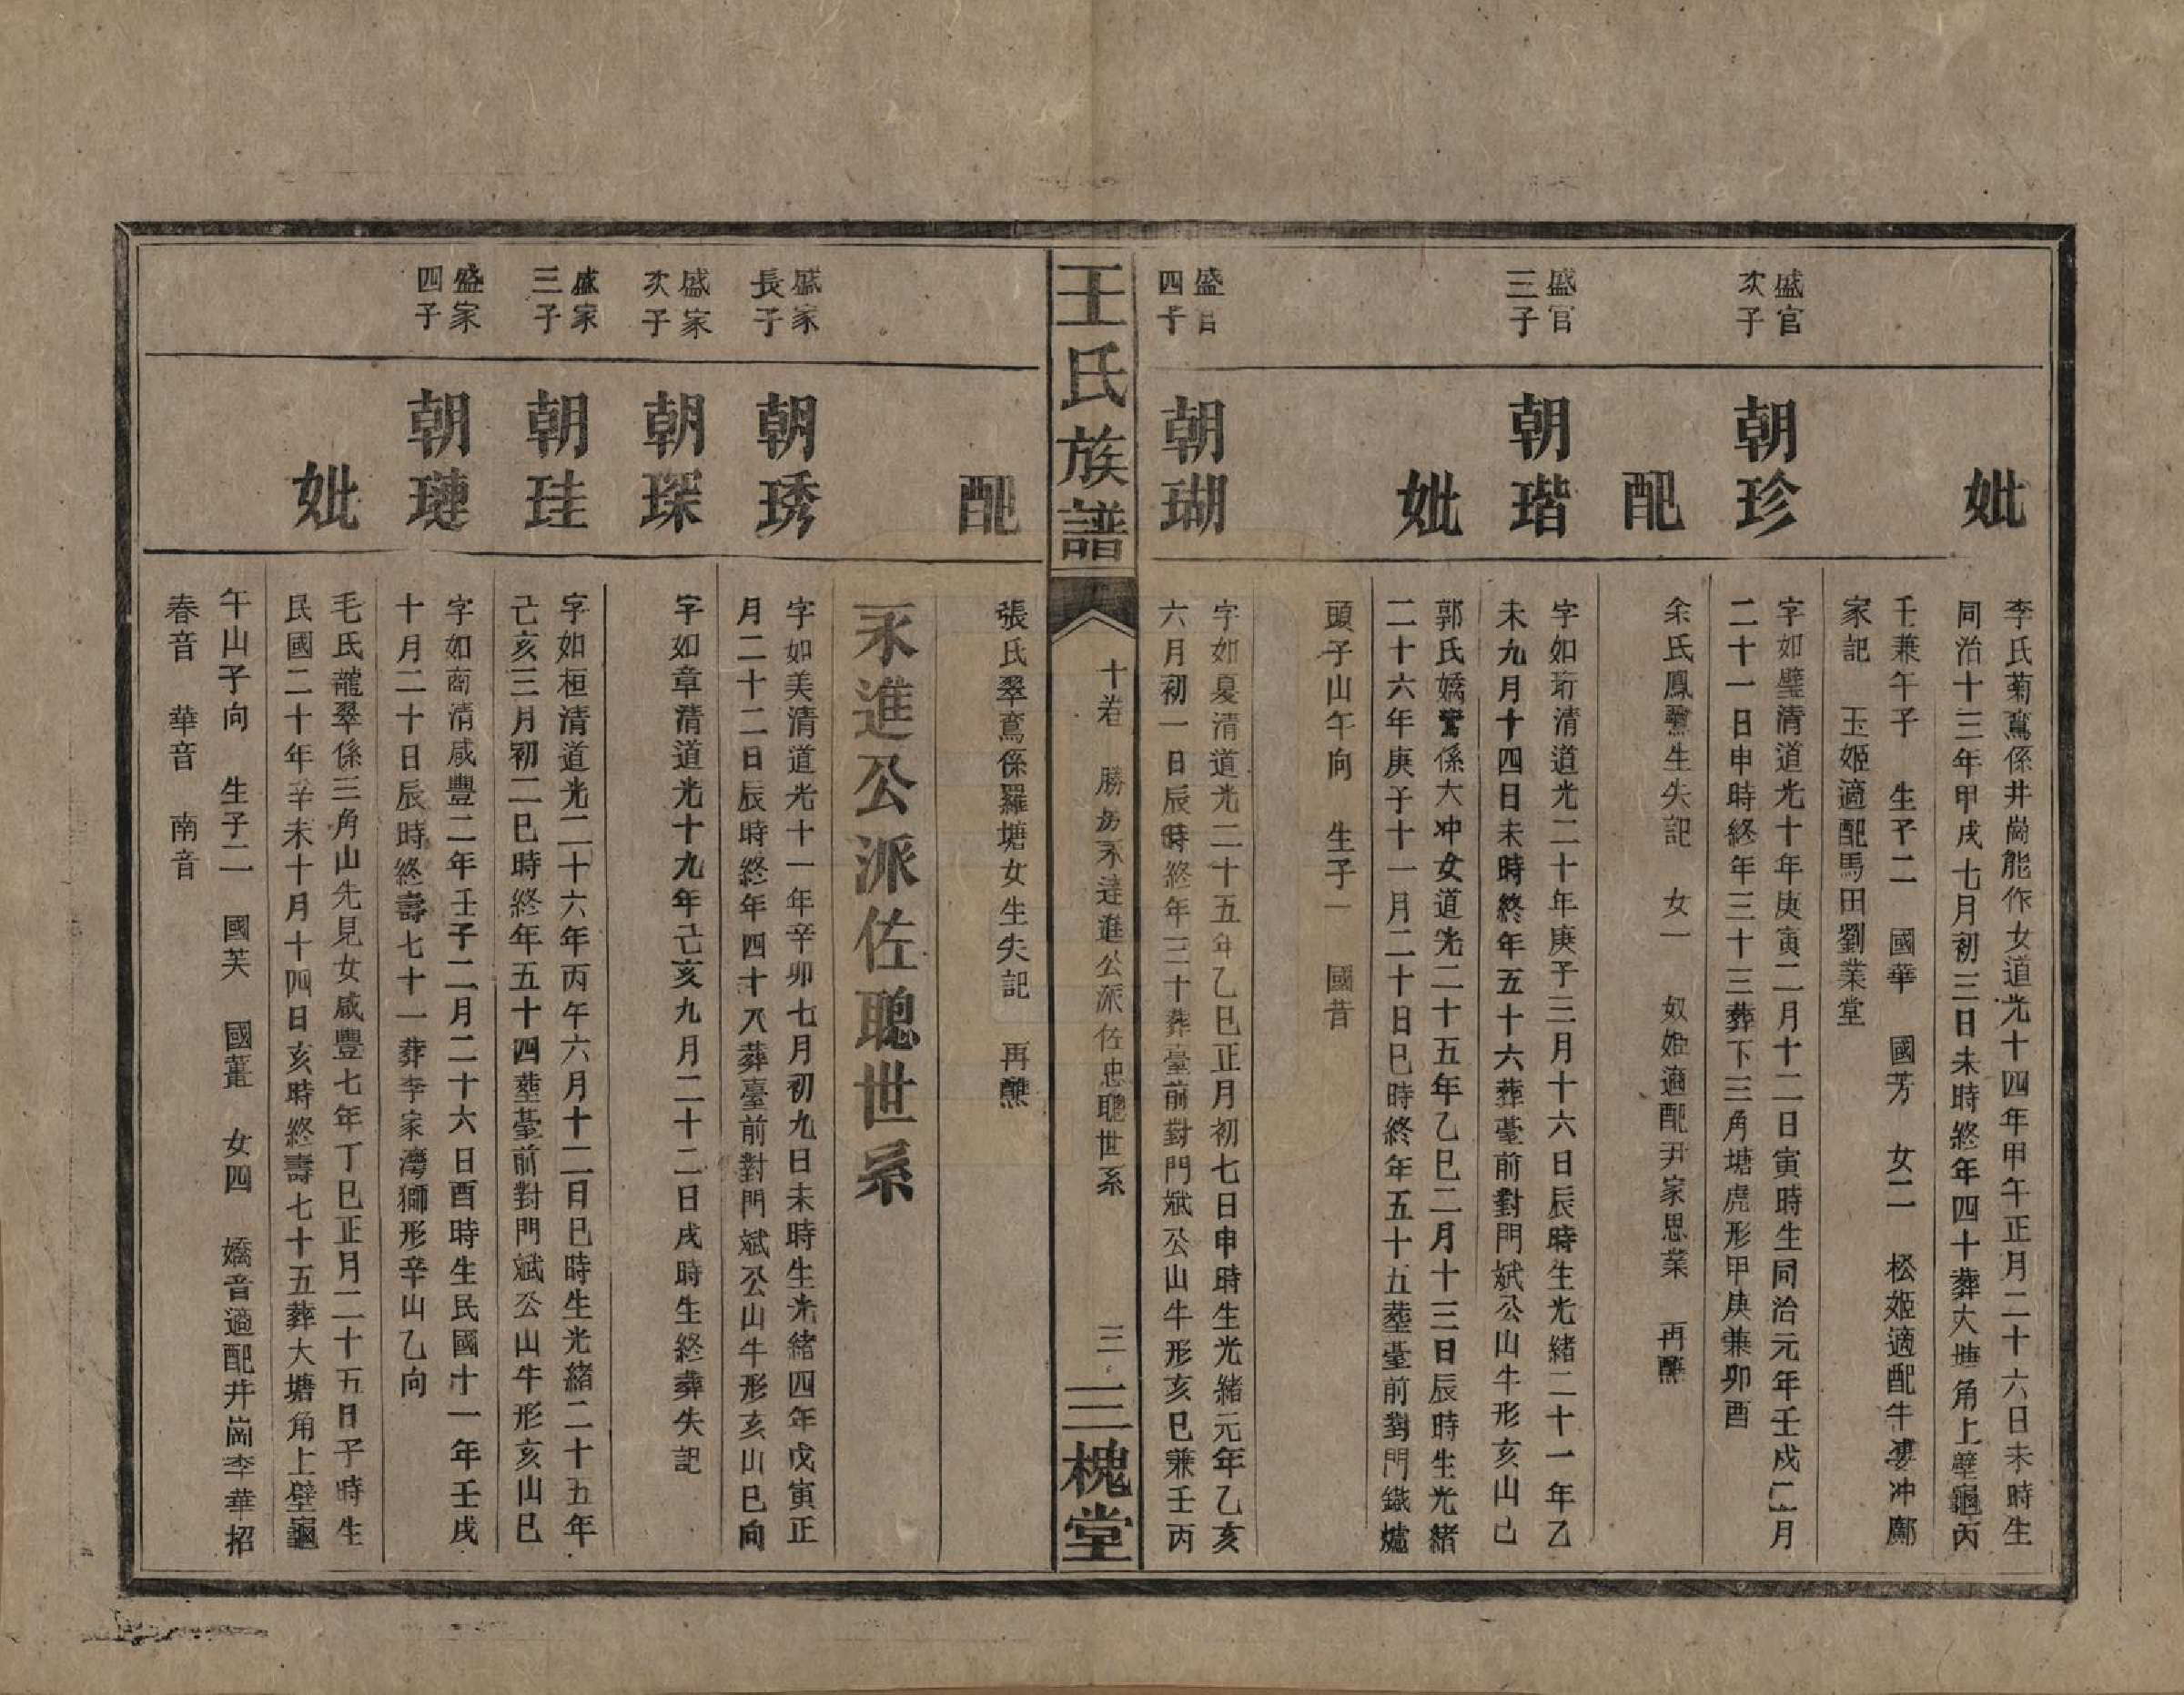 妣
李氏菊蔦係井崗能作女道光十四年甲午正月二十六日未時生
同治十三年甲戌七月初三日未時終年四十葬大塘角上壁龜丙
壬兼午子 生子二 國華 國芳 女二 松姬適配牛婁冲鄺
家記 玉姬適配馬田劉業堂
盛官
次子
朝珍
字如璧清道光十年庚寅二月十二日寅時生同治元年壬戌二月
二十一日申時終年三十三葬下三角塘虎形甲庚兼卯酉
配
余氏鳳鸞生失記 女一 奴姫適配尹家思業 再醮
盛官
三子
朝瑎
字如珩清道光二十年庚子三月十六日辰時生光緒二十一年乙
未九月十四日未時終年五十六葬臺前對門斌公山牛形亥山己
妣
郭氏嬌鸞係大冲女道光二十五年乙巳二月十三日辰時生光緒
二十六年庚子十一月二十日巳時終年五十五塟臺前對門鐵爐
頭子山午向 生子一 國昔
盛官
四子
朝瑚
字如夏清道光二十五年乙巳正月初七日申時生光緒元年乙亥
六月初一日辰時終年三十葬臺前對門斌公山牛形亥巳兼壬丙
王氏族譜
十卷 勝房永達進公派佐忠聰世系
三
三槐堂
配
張氏翠鳶係羅塘女生失記 再醮
永進公派佐聰世系
盛家
長子
朝琇
字如美清道光十一年辛卯七月初九日未時生光緒四年戊寅正
月二十二日辰時終年四十八葬臺前對門斌公山牛形亥山巳向
盛家
次子
朝琛
字如章清道光十九年己亥九月二十二日戌時生終葬失記
盛家
三子
朝珪
字如桓清道光二十六年丙午六月十二日巳時生光緒二十五年
己亥三月初二巳時終年五十四塟臺前對門斌公山牛形亥山巳
盛家
四子
朝璉
字如商清咸豐二年壬子二月二十六日酉時生民國十一年壬戌
十月二十日辰時終壽七十一葬李家灣獅形辛山乙向
妣
毛氏龍翠係三角山先見女咸豐七年丁巳正月二十五日子時生
民國二十年辛未十月十四日亥時終壽七十五葬大塘角上壁龜
午山子向 生子二 國芙 國蓋 女四 嬌音適配井崗李華招
春音 華音 南音